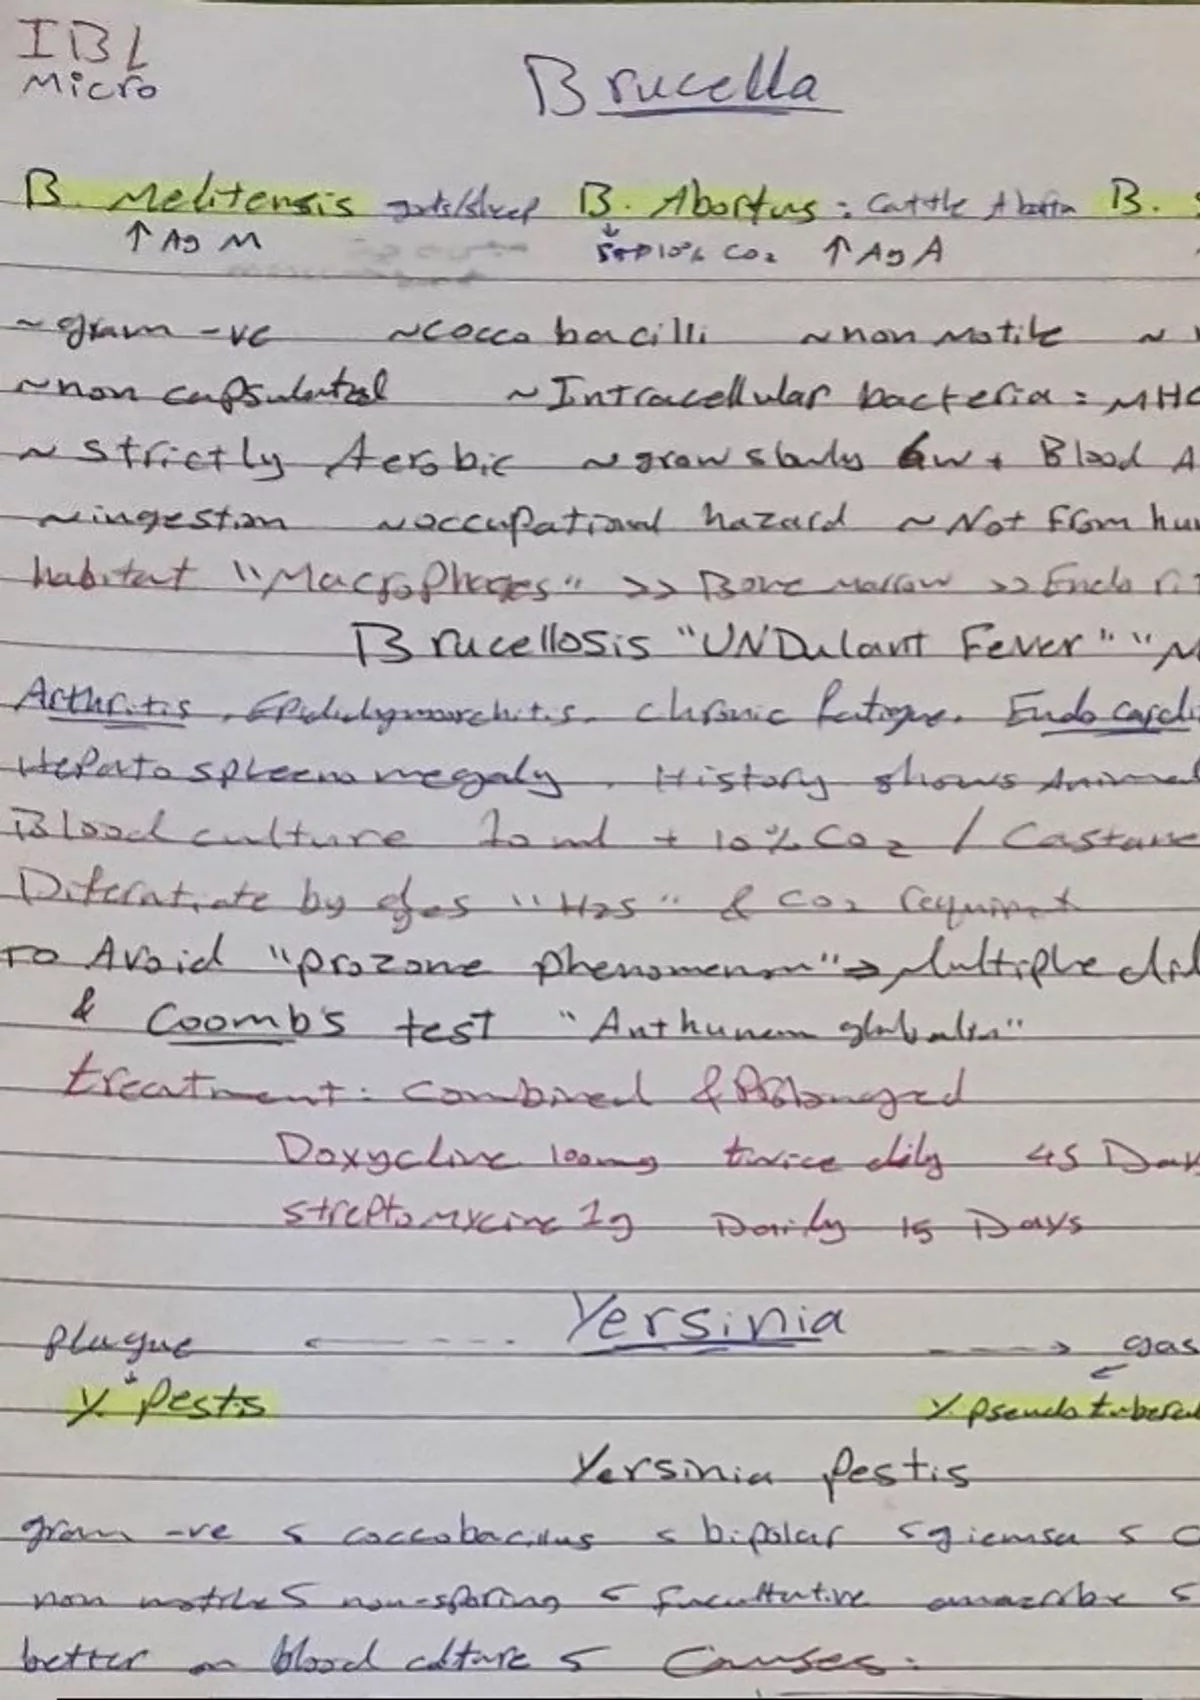 IBL
Micro
Brucella
B. Melitensis goats/sheep B. Abortus : Cattle B.
↑ Ag M 10% CO2 ↑ Ag A
~ gram -ve ~cocco bacilli ~non Motile ~
~non capsulated ~Intracellular bacteria : MHC
~ strictly Aerobic ~grow slowly 6w + Blood A
~ingestion ~occupational hazard ~ Not From hu
habitat "Macrophages" >> Bone marrow >> Endo
Brucellosis "UNDulant Fever" "
Arthritis, chronic fatigue. Endo cardi
Hepato spleeno megaly. History shows Animal
Blood culture 10 ml + 10% CO2 / Castane
by "H2S" & CO2
To Avoid "prozone phenomenon"→ Multiple dil
& Coomb's test "Ant human globulin"
treatment: Combined & Prolonged
Doxycline 100mg twice dily 45 Day
streptomycine 1g Daily 15 Days
Yersinia
plague <---- ----> gas
Y. Pestis Y pseudo tubercul
Yersinia Pestis
gram -ve s coccobacillus s bipolar s giemsa s
non motile s non-sporing s facultative s
better on blood culture s Causes: